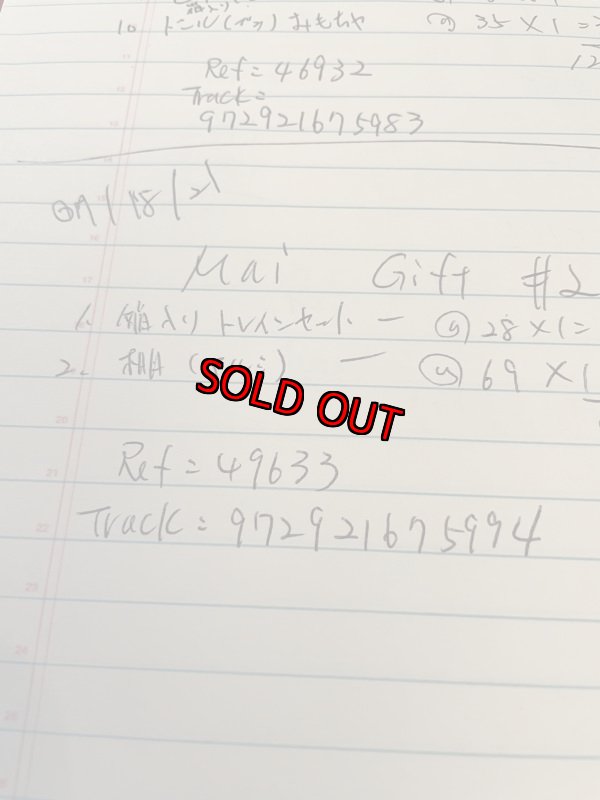 10. トンル(ボカ) おもちゃ @ 35 X 1 =
12
Ref = 46932
Track =
972921675983
09/18/21
Mai Gift #2
1. 箱入り トレインセット — @ 28 X 1 =
2. 棚 ( ) — @ 69 X 1
SOLD OUT
Ref = 49633
Track : 972921675994